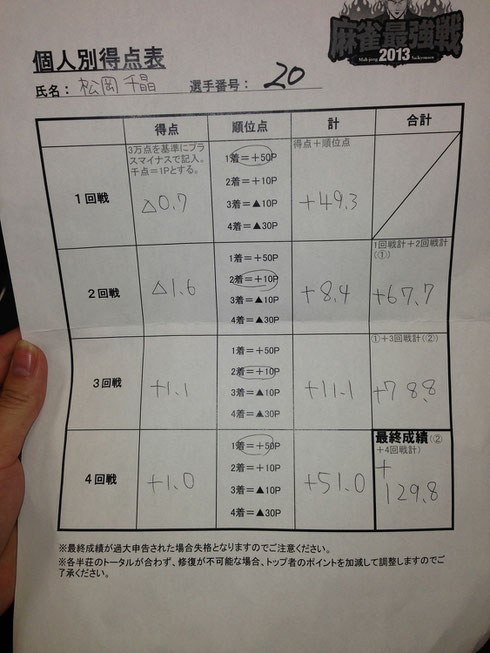 麻雀最強戦
2013
個人別得点表
氏名：松岡千晶 選手番号：20
得点 順位点 計 合計
1回戦
3万点を基準にプラ
スマイナスで記入。
千点＝1Pとする。
△0.7
1着＝＋50P
2着＝＋10P
3着＝▲10P
4着＝▲30P
得点＋順位点
+49.3
2回戦
△1.6
1着＝＋50P
2着＝＋10P
3着＝▲10P
4着＝▲30P
+8.4
1回戦計＋2回戦計
(①)
+67.7
3回戦
+1.1
1着＝＋50P
2着＝＋10P
3着＝▲10P
4着＝▲30P
+11.1
①＋3回戦計(②)
+78.8
4回戦
+1.0
1着＝＋50P
2着＝＋10P
3着＝▲10P
4着＝▲30P
+51.0
最終成績(②
＋4回戦計)
+
129.8
※最終成績が過大申告された場合失格となりますのでご注意ください。
※各半荘のトータルが合わず、修復が不可能な場合、トップ者のポイントを加減して調整しますのでご
了承ください。